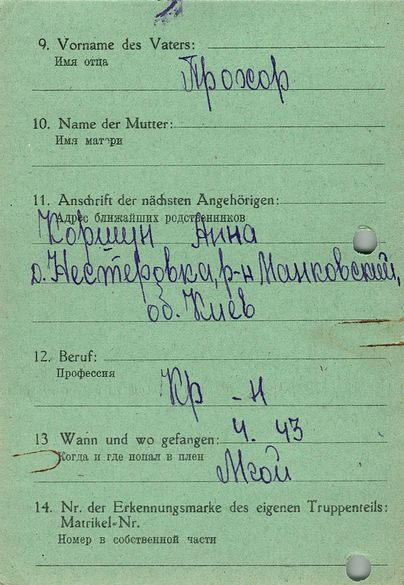 9. Vorname des Vaters:
Имя отца
Прохор
10. Name der Mutter:
Имя матери
11. Anschrift der nächsten Angehörigen:
Адрес ближайших родственников
Коршун Анна
д. Нестеровка, р-н Манковский,
об. Киев
12. Beruf:
Профессия
Кр-н
13 Wann und wo gefangen: 4. 43
Когда и где попал в плен
14. Nr. der Erkennungsmarke des eigenen Truppenteils:
Matrikel-Nr.
Номер в собственной части